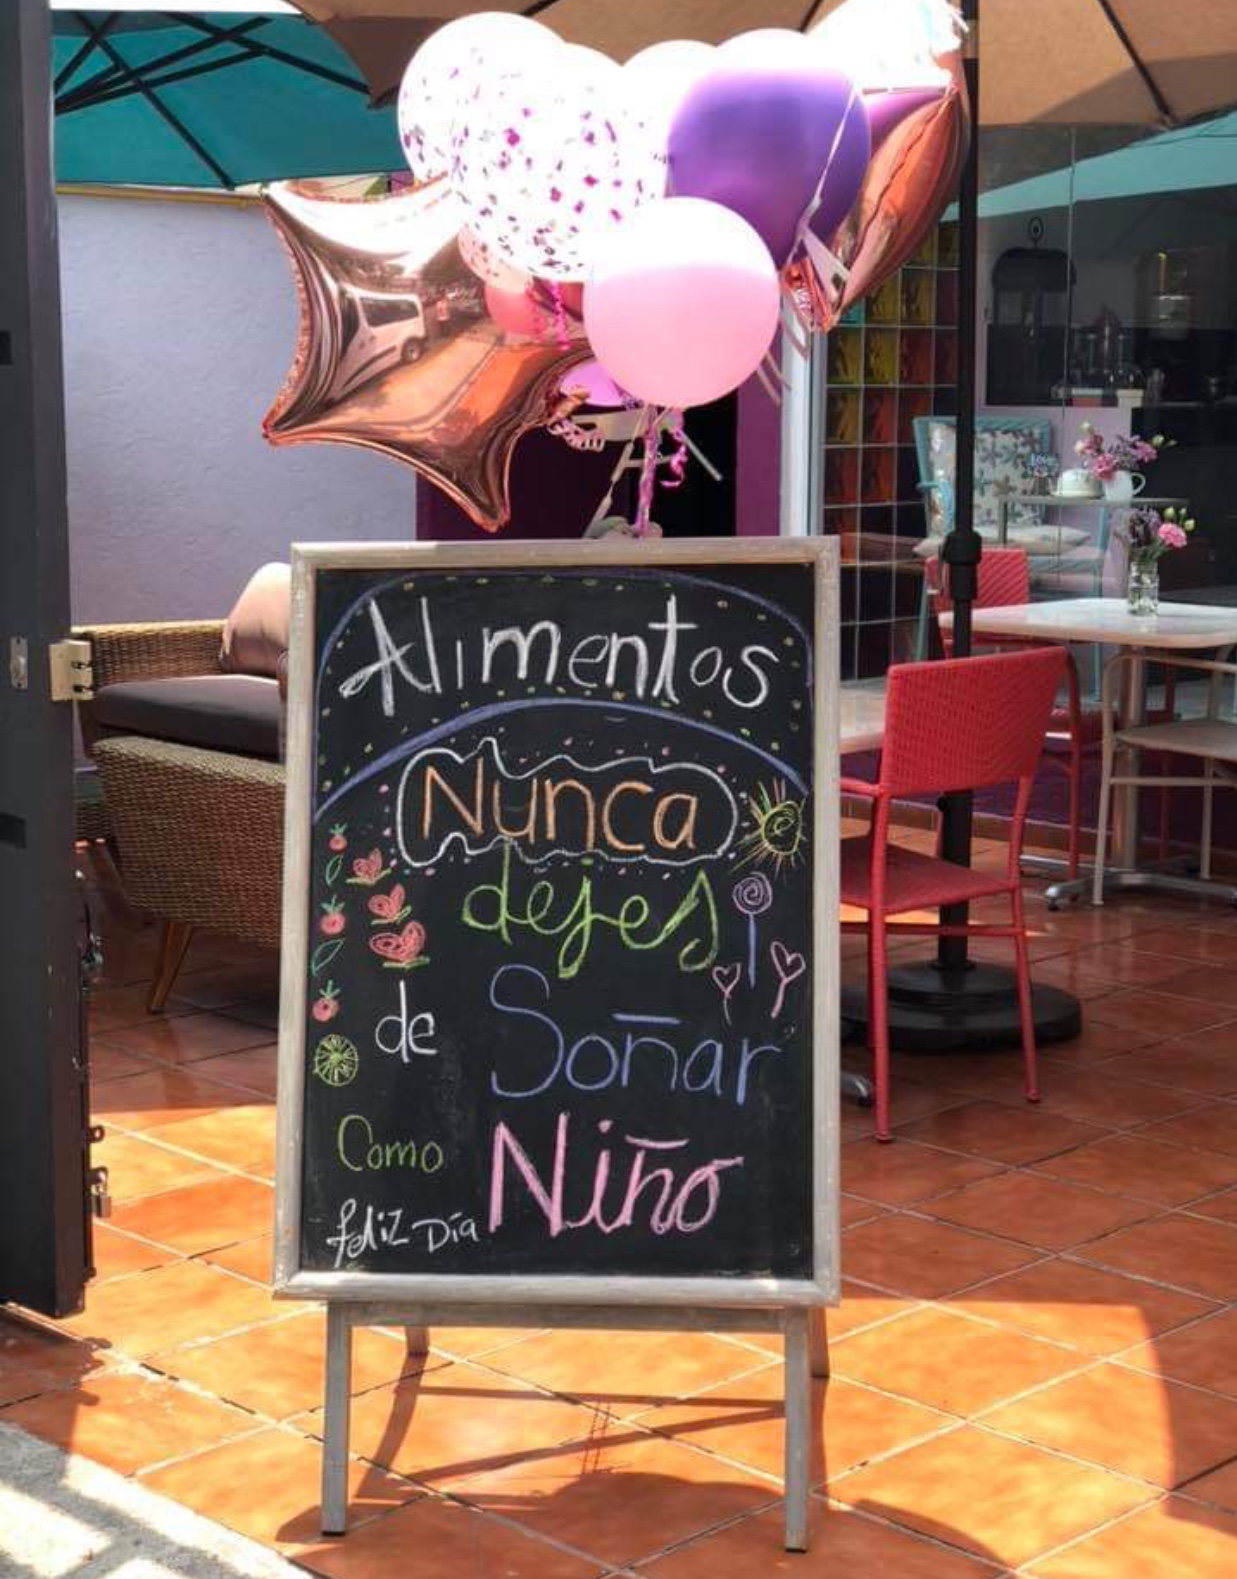 Alimentos
Nunca
dejes
de Soñar
Como Niño
feliz Día